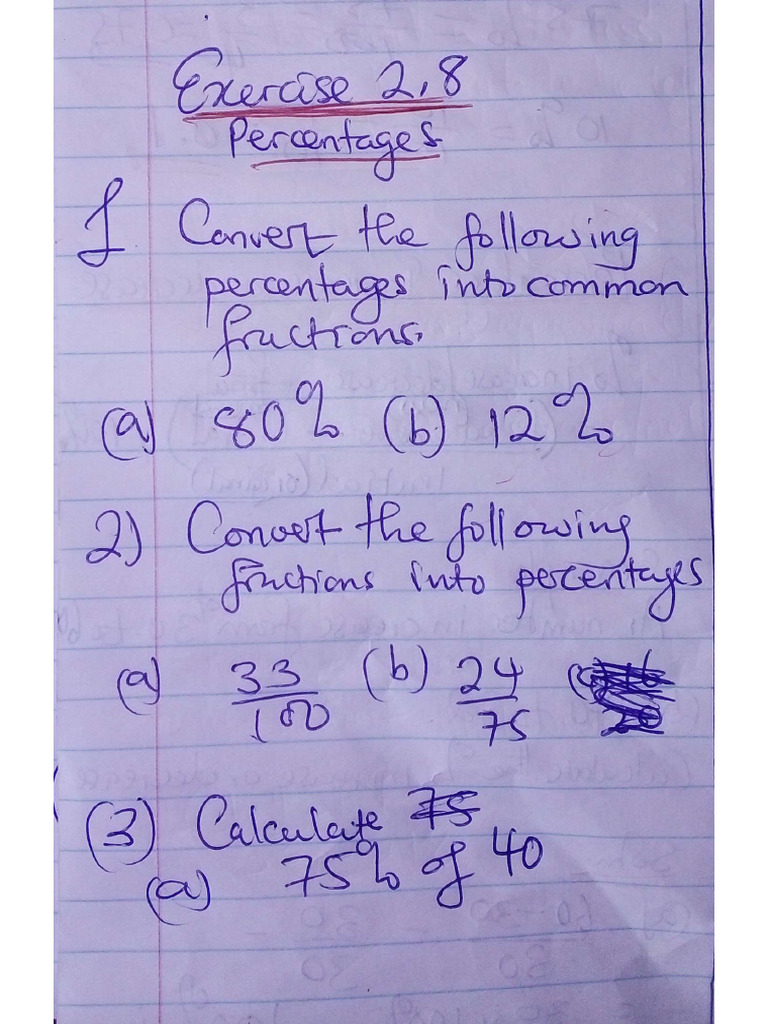 Exercise 2.8
Percentages
1 Convert the following
percentages into common
fractions.
(a) 80% (b) 12%
2) Convert the following
fractions into percentages
(a) 33/100 (b) 24/75
(3) Calculate 75
(a) 75% of 40